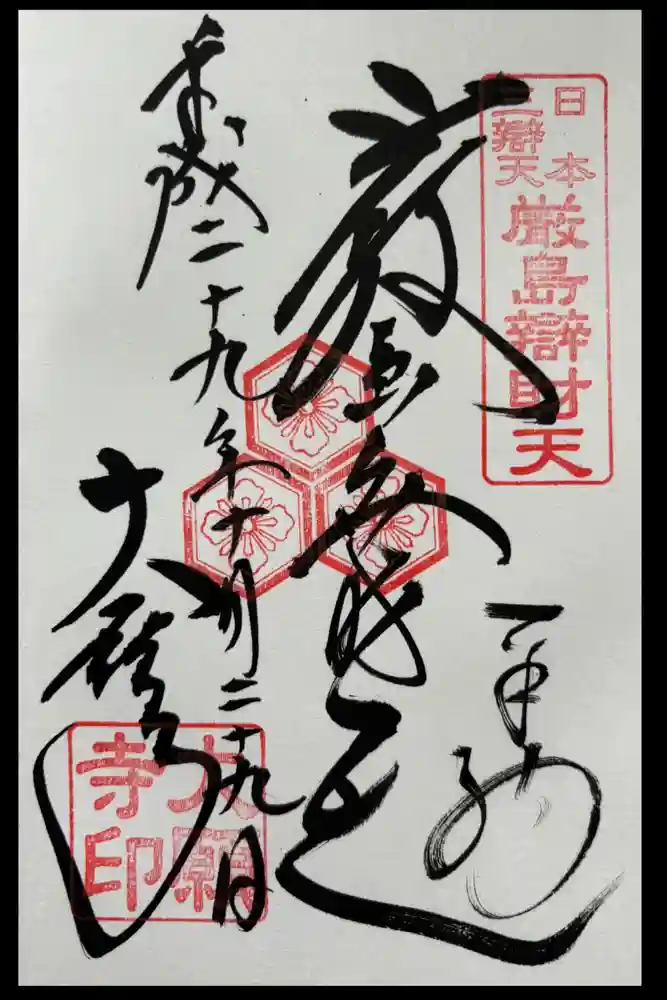 日本三辯天
厳島辯財天
厳島弁財天
平成二十九年十月二十九日
大願寺
大願寺印